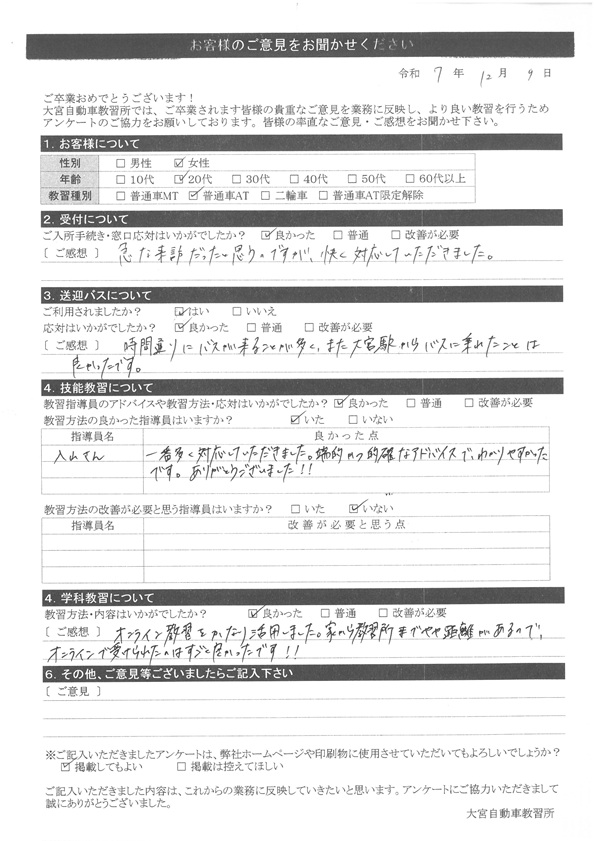 お客様のご意見をお聞かせください
令和 7 年 12 月 9 日
ご卒業おめでとうございます!
大宮自動車教習所では、ご卒業されます皆様の貴重なご意見を業務に反映し、より良い教習を行うため
アンケートのご協力をお願いしております。皆様の率直なご意見・ご感想をお聞かせ下さい。
1. お客様について
性別 □ 男性 ☑ 女性
年齢 □ 10代 ☑ 20代 □ 30代 □ 40代 □ 50代 □ 60代以上
教習種別 □ 普通車MT ☑ 普通車AT □ 二輪車 □ 普通車AT限定解除
2. 受付について
ご入所手続き・窓口応対はいかがでしたか? ☑ 良かった □ 普通 □ 改善が必要
[ ご感想 ] 急な来訪だったと思うのですが、快く対応していただきました。
3. 送迎バスについて
ご利用されましたか? ☑ はい □ いいえ
応対はいかがでしたか? ☑ 良かった □ 普通 □ 改善が必要
[ ご感想 ] 時間通りにバスが来ることが多く、また大宮駅からバスに乗れたことは
良かったです。
4. 技能教習について
教習指導員のアドバイスや教習方法・応対はいかがでしたか? ☑ 良かった □ 普通 □ 改善が必要
教習方法の良かった指導員はいますか? ☑ いた □ いない
指導員名 良かった点
入山さん 一番多く対応していただきました。端的かつ的確なアドバイスで、わかりやすかった
です。ありがとうございました!!
教習方法の改善が必要と思う指導員はいますか? □ いた ☑ いない
指導員名 改善が必要と思う点
4. 学科教習について
教習方法・内容はいかがでしたか? ☑ 良かった □ 普通 □ 改善が必要
[ ご感想 ] オンライン教習をかなり活用しました。家から教習所までやや距離があるので、
オンラインで受けられたのはすごく良かったです!!
6. その他、ご意見等ございましたらご記入下さい
[ ご意見 ]
※ご記入いただきましたアンケートは、弊社ホームページや印刷物に使用させていただいてもよろしいでしょうか?
☑ 掲載してもよい □ 掲載は控えてほしい
ご記入いただきました内容は、これからの業務に反映していきたいと思います。アンケートにご協力いただきまして
誠にありがとうございました。
大宮自動車教習所